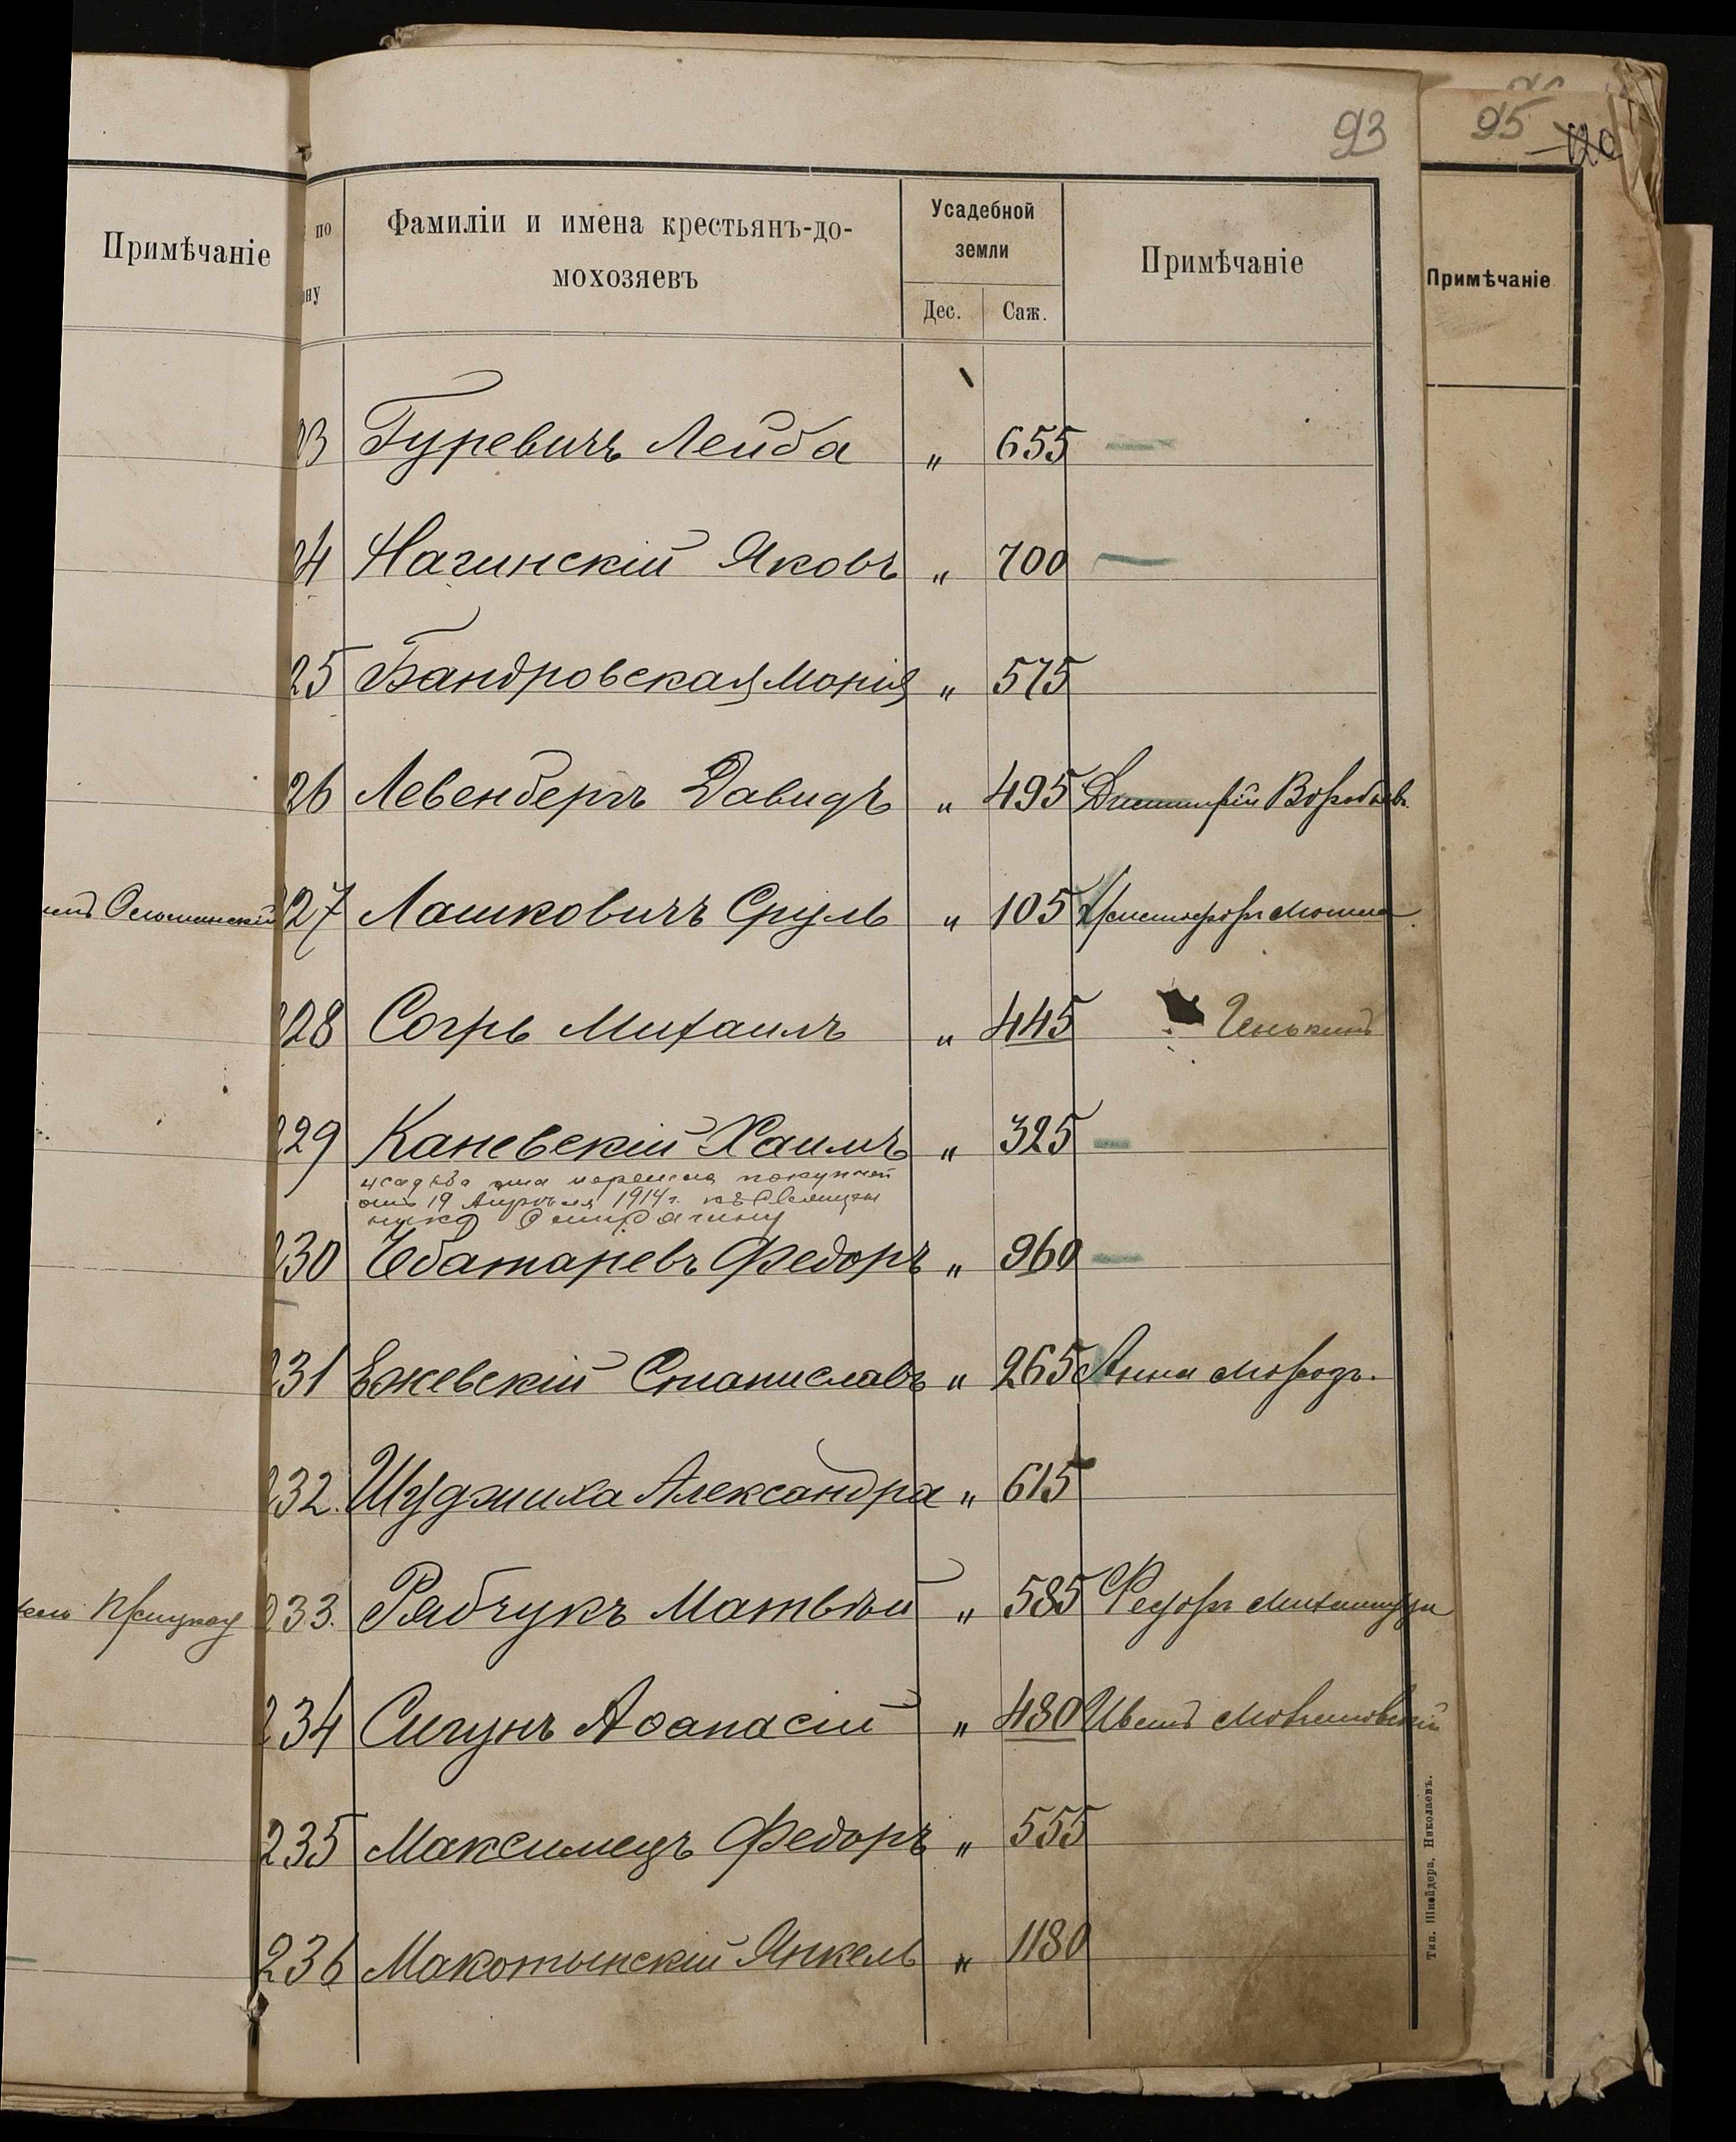 93
95
Примѣчаніе
по
ну
Фамиліи и имена крестьянъ-до-
мохозяевъ
Усадебной
земли
Дес. Саж.
Примѣчаніе
Примѣчаніе
23 Гуревичъ Лейба " 655 —
24 Нагинскій Яковъ " 700 —
25 Бандровская Марія " 575
26 Левенбергъ Давидъ " 495 Дмитрій Воробьевъ
227 Лашковичъ Сруль " 105 Христофоръ
228 Согрь Михаилъ " 445
229 Каневскій Хаимъ " 325 —
усадьба эта перешла покупкой
отъ 19 Апрѣля 1914 г. къ Священ
нику
230 Чеботаревъ Федоръ " 960 —
231 Ежевскій Станиславъ " 265 Анна Морозъ.
232. Шуджиха Александра " 615
233. Рябчукъ Матвѣй " 585 Федоръ
234 Сигунъ Аѳанасій " 480 Иванъ
235 Максимецъ Федоръ " 555
236 Макотынскій Янкель " 1180
Тип. Шнейдера, Николаевъ.